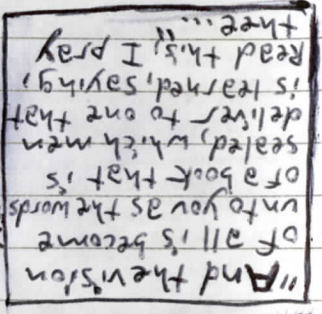 "And the vision
of all is become
unto you as the words
of a book that is
sealed, which men
deliver to one that
is learned, saying,
Read this," I pray
thee...